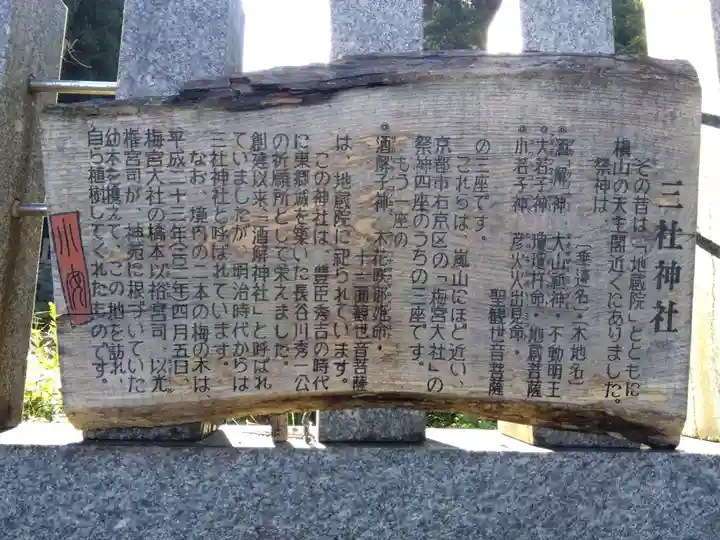 三社神社
その昔は「地蔵院」とともに
槇山の天主閣近くにありました。
祭神は
〔垂迹名〕〔本地名〕
•酒解神 大山祇神・不動明王
•大若子神 瓊瓊杵命・地蔵菩薩
•小若子神 彦火火出見命・
聖観世音菩薩
の三座です。
これらは、嵐山にほど近い、
京都市右京区の「梅宮大社」の
祭神四座のうちの三座です。
もう一座の
•酒解子神 木花咲耶姫命・
十一面観世音菩薩
は、地蔵院に祀られています。
この神社は、豊臣秀吉の時代
に東郷城を築いた長谷川秀一公
の祈願所として栄えました。
創建以来「酒解神社」と呼ばれ
ていましたが、明治時代からは
三社神社と呼ばれています。
なお、境内の二本の梅の木は、
平成二十三年(二〇一一年)四月五日、
梅宮大社の橋本以裕宮司、以光
権宮司が、神苑に根づいていた
幼木を携えて、この地を訪れ、
自ら植樹してくれたものです。